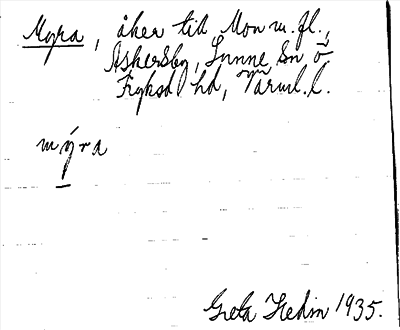 Myra, åker till Mon m. fl.,
Askersby, Sunne Sn ö
Fryksd hd, Värml. l.
mýra
Greta Hedin 1935.